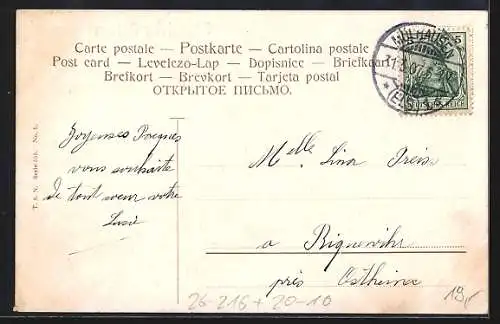 Carte postale — Postkarte — Cartolina postale
Post card — Levelezo-Lap — Dopisnice — Briefkaart
Brefkort — Brevkort — Tarjeta postal
ОТКРЫТОЕ ПИСЬМО.
MÜLHAUSEN
5
(ELS
T. S. N. Serie No. 1.
Joyeuses Pâques
vous souhaite
de tout coeur votre
Lucie
Melle. Lina Preiss
a Riquewihr
près Ostheim
26-216+20-10